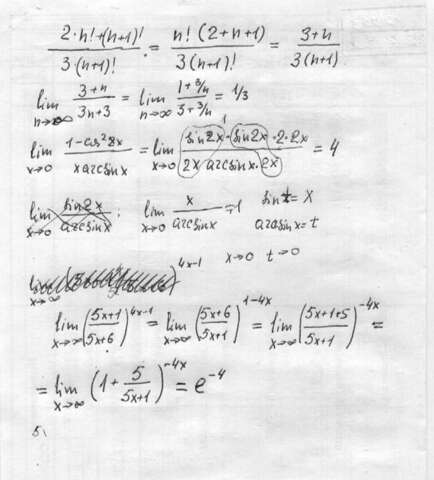 2·n!+(n+1)! / 3(n+1)! = n!(2+n+1) / 3(n+1)! = 3+n / 3(n+1)
lim n→∞ 3+n / 3n+3 = lim n→∞ 1+3/n / 3+3/n = 1/3
lim x→0 1-cos²2x / x arcsinx = lim x→0 sin2x·sin2x·2·2x / 2x arcsinx·2x = 4
1
lim x→0 sin2x / arcsinx ; lim x→0 x / arcsinx = 1 sin t = x
arcsinx = t
4x-1 x→0 t→0
lim x→∞
lim x→∞ (5x+1 / 5x+6)^4x-1 = lim x→∞ (5x+6 / 5x+1)^1-4x = lim x→∞ (5x+1+5 / 5x+1)^-4x =
= lim x→∞ (1 + 5 / 5x+1)^-4x = e^-4
5\